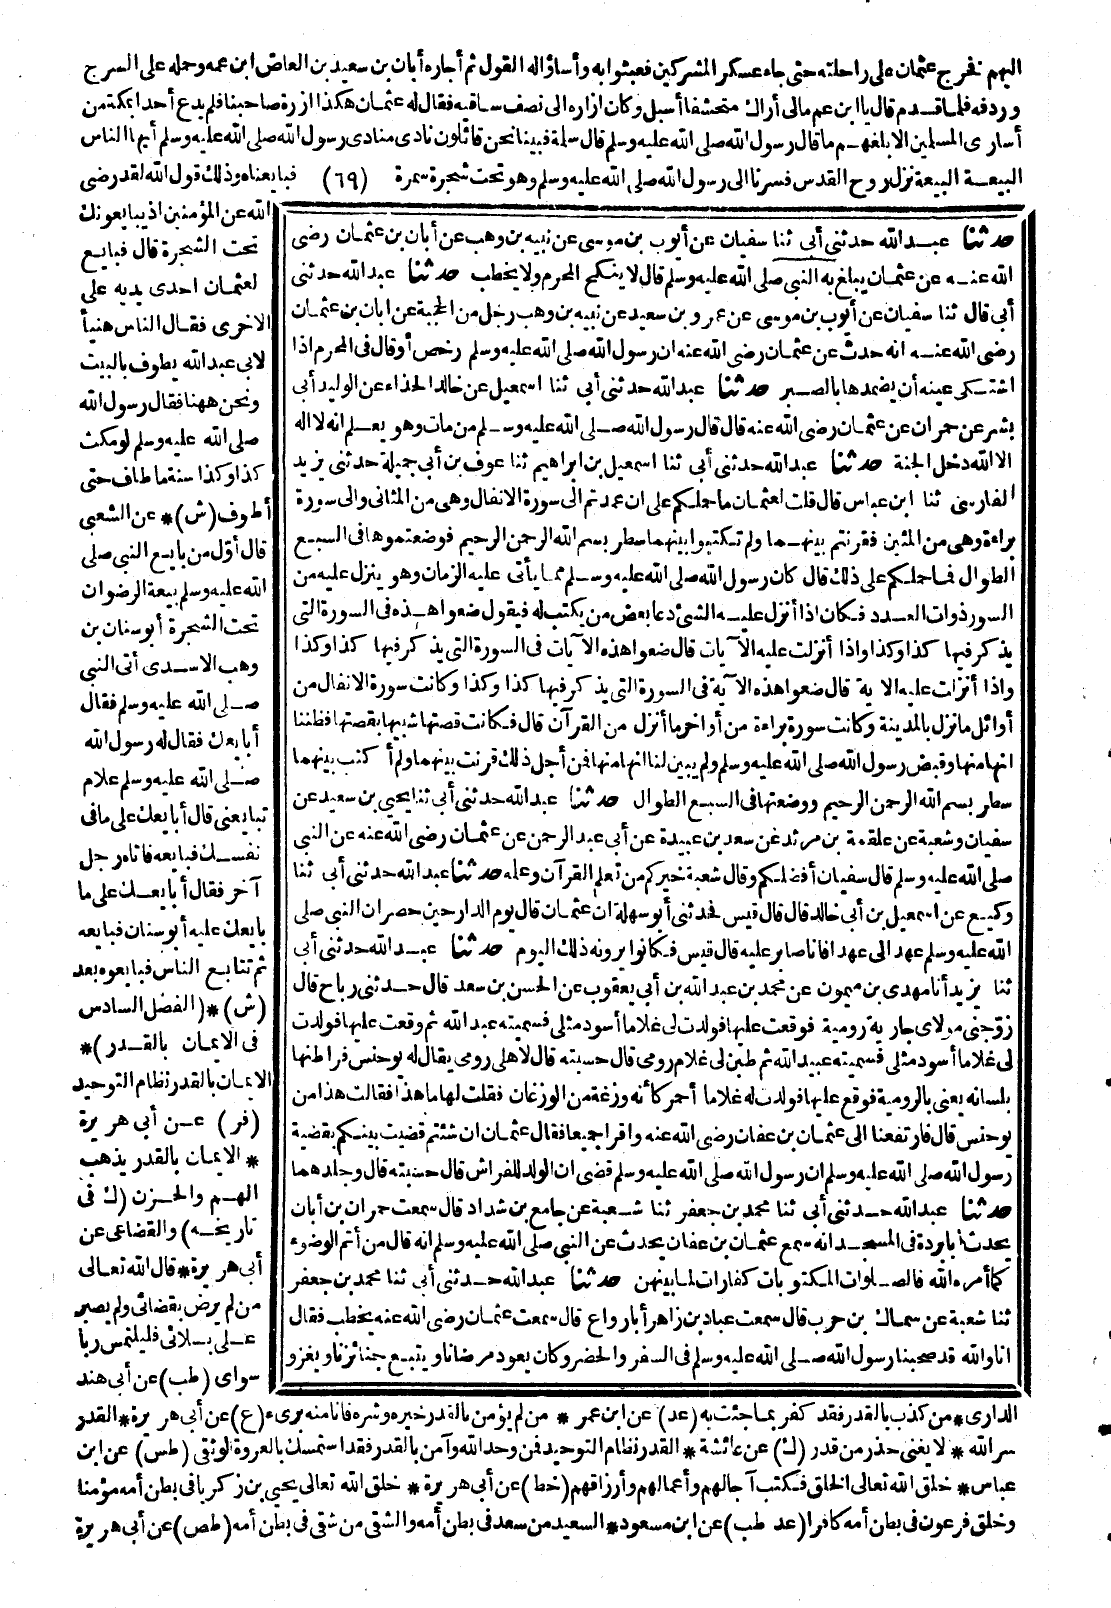 اليهم فخرج عثمان على راحلته حتى جاء عسكر المشركين فعبثوا به وأساؤا له القول ثم أجاره أبان بن سعيد بن العاص ابن عمه وحمله على السرج
وردفه فلما قدم قال يا ابن عم مالى أراك متخشفا أسبل وكان ازاره الى نصف ساقيه فقال له عثمان هكذا ازرة صاحبنا فلم يدع أحدا بمكة من
أسارى المسلمين الا بلغهم ما قال رسول الله صلى الله عليه وسلم قال سلمة فبينا نحن قائلون نادى منادى رسول الله صلى الله عليه وسلم أيها الناس
البيعة البيعة نزل روح القدس فسرنا الى رسول الله صلى الله عليه وسلم وهو تحت شجرة سمرة (٦٩) فبايعناه وذلك قول الله لقد رضى
الله عن المؤمنين اذ يبايعونك
تحت الشجرة قال فبايع
لعثمان احدى يديه على
الاخرى فقال الناس هنيأ
لابى عبد الله يطوف بالبيت
ونحن ههنا فقال رسول الله
صلى الله عليه وسلم لو مكث
كذا وكذا سنة ما طاف حتى
أطوف (ش)* عن الشعبى
قال أول من بايع النبى صلى
الله عليه وسلم بيعة الرضوان
تحت الشجرة أبو سنان بن
وهب الاسدى أتى النبى
صلى الله عليه وسلم فقال
أبايعك فقال له رسول الله
صلى الله عليه وسلم علام
تبايعنى قال أبايعك على ما فى
نفسك فبايعه فاتاه رجل
آخر فقال أبايعك على ما
بايعك عليه أبو سنان فبايعه
ثم تتابع الناس فبايعوه بعد
(ش)*(الفصل السادس
فى الايمان بالقدر)*
الايمان بالقدر نظام التوحيد
(فر) عن أبى هريرة
* الايمان بالقدر يذهب
الهم والحزن (ك فى
تاريخه) والقضاعى عن
أبى هريرة * قال الله تعالى
من لم يرض بقضائى ولم يصبر
على بلائى فليلتمس ربا
سواى (طب) عن أبى هند
حدثنا عبد الله حدثنى أبى ثنا سفيان عن أيوب بن موسى عن نبيه بن وهب عن أبان بن عثمان رضى
الله عنه عن عثمان يبلغ به النبى صلى الله عليه وسلم قال لا ينكح المحرم ولا يخطب حدثنا عبد الله حدثنى
أبى قال ثنا سفيان عن أيوب بن موسى عن عمرو بن سعيد عن نبيه بن وهب رجل من الحجبة عن ابان بن عثمان
رضى الله عنه انه حدث عن عثمان رضى الله عنه ان رسول الله صلى الله عليه وسلم رخص أو قال فى المحرم اذا
اشتكى عينه أن يضمدها بالصبر حدثنا عبد الله حدثنى أبى ثنا اسمعيل عن خالد الحذاء عن الوليد أبى
بشر عن حمران عن عثمان رضى الله عنه قال قال رسول الله صلى الله عليه وسلم من مات وهو يعلم انه لا اله
الا الله دخل الجنة حدثنا عبد الله حدثنى أبى ثنا اسمعيل بن ابراهيم ثنا عوف بن أبى جميلة حدثنى يزيد
الفارسى ثنا ابن عباس قال قلت لعثمان ما حملكم على ان عمدتم الى سورة الانفال وهى من المثانى والى سورة
براءة وهى من المئين فقرنتم بينهما ولم تكتبوا بينهما سطر بسم الله الرحمن الرحيم فوضعتموها فى السبع
الطوال فما حملكم على ذلك قال كان رسول الله صلى الله عليه وسلم مما يأتى عليه الزمان وهو ينزل عليه من
السور ذوات العدد فكان اذا أنزل عليه الشئ دعا بعض من يكتب له فيقول ضعوا هذه فى السورة التى
يذكر فيها كذا وكذا واذا أنزلت عليه الآيات قال ضعوا هذه الآيات فى السورة التى يذكر فيها كذا وكذا
واذا أنزلت عليه الاية قال ضعوا هذه الآية فى السورة التى يذكر فيها كذا وكذا وكانت سورة الانفال من
أوائل ما نزل بالمدينة وكانت سورة براءة من أواخر ما أنزل من القرآن قال فكانت قصتها شبيها بقصتها فظننا
انها منها وقبض رسول الله صلى الله عليه وسلم ولم يبين لنا انها منها فمن أجل ذلك قرنت بينهما ولم أكتب بينهما
سطر بسم الله الرحمن الرحيم ووضعتها فى السبع الطوال حدثنا عبد الله حدثنى أبى ثنا يحيى بن سعيد عن
سفيان وشعبة عن علقمة بن مرثد عن سعد بن عبيدة عن أبى عبد الرحمن عن عثمان رضى الله عنه عن النبى
صلى الله عليه وسلم قال سفيان أفضلكم وقال شعبة خيركم من تعلم القرآن وعلمه حدثنا عبد الله حدثنى أبى ثنا
وكيع عن اسمعيل بن أبى خالد قال قال قيس فحدثنى أبو سهلة ان عثمان قال يوم الدار حين حصر ان النبى صلى
الله عليه وسلم عهد الى عهدا فانا صابر عليه قال قيس فكانوا يرونه ذلك اليوم حدثنا عبد الله حدثنى أبى
ثنا يزيد أنا مهدى بن ميمون عن محمد بن عبد الله بن أبى يعقوب عن الحسن بن سعد قال حدثنى رباح قال
زوجنى مولاى جارية رومية فوقعت عليها فولدت لى غلاما أسود مثلى فسميته عبد الله ثم وقعت عليها فولدت
لى غلاما أسود مثلى فسميته عبيد الله ثم طبن لى غلام رومى قال حسبته قال لاهلى رومى يقال له يوحنس فراطنها
بلسانه يعنى بالرومية فوقع عليها فولدت له غلاما أحمر كأنه وزغة من الوزغان فقلت لها ما هذا فقالت هذا من
يوحنس قال فارتفعنا الى عثمان بن عفان رضى الله عنه وأقرا جميعا فقال عثمان ان شئتم قضيت بينكم بقضية
رسول الله صلى الله عليه وسلم ان رسول الله صلى الله عليه وسلم قضى ان الولد للفراش قال حسبته قال وجلدهما
حدثنا عبد الله حدثنى أبى ثنا محمد بن جعفر ثنا شعبة عن جامع بن شداد قال سمعت حمران بن أبان
يحدث أبا بردة فى المسجد انه سمع عثمان بن عفان يحدث عن النبى صلى الله عليه وسلم انه قال من أتم الوضوء
كما أمره الله فالصلوات المكتوبات كفارات لما بينهن حدثنا عبد الله حدثنى أبى ثنا محمد بن جعفر
ثنا شعبة عن سماك بن حرب قال سمعت عباد بن زاهر أبا رواع قال سمعت عثمان رضى الله عنه يخطب فقال
انا والله قد صحبنا رسول الله صلى الله عليه وسلم فى السفر والحضر وكان يعود مرضانا ويتبع جنائزنا ويغزو
الدارى * من كذب بالقدر فقد كفر بما جئت به (عد) عن ابن عمر * من لم يؤمن بالقدر خيره وشره فانا منه برىء (ع) عن أبى هريرة * القدر
سر الله * لا يغنى حذر من قدر (ك) عن عائشة * القدر نظام التوحيد فمن وحد الله وآمن بالقدر فقد استمسك بالعروة الوثقى (طس) عن ابن
عباس * خلق الله تعالى الخلق فكتب آجالهم وأعمالهم وأرزاقهم (خط) عن أبى هريرة * خلق الله تعالى يحيى بن زكريا فى بطن أمه مؤمنا
وخلق فرعون فى بطن أمه كافرا (عد طب) عن ابن مسعود * السعيد من سعد فى بطن أمه والشقى من شقى فى بطن أمه (طص) عن أبى هريرة